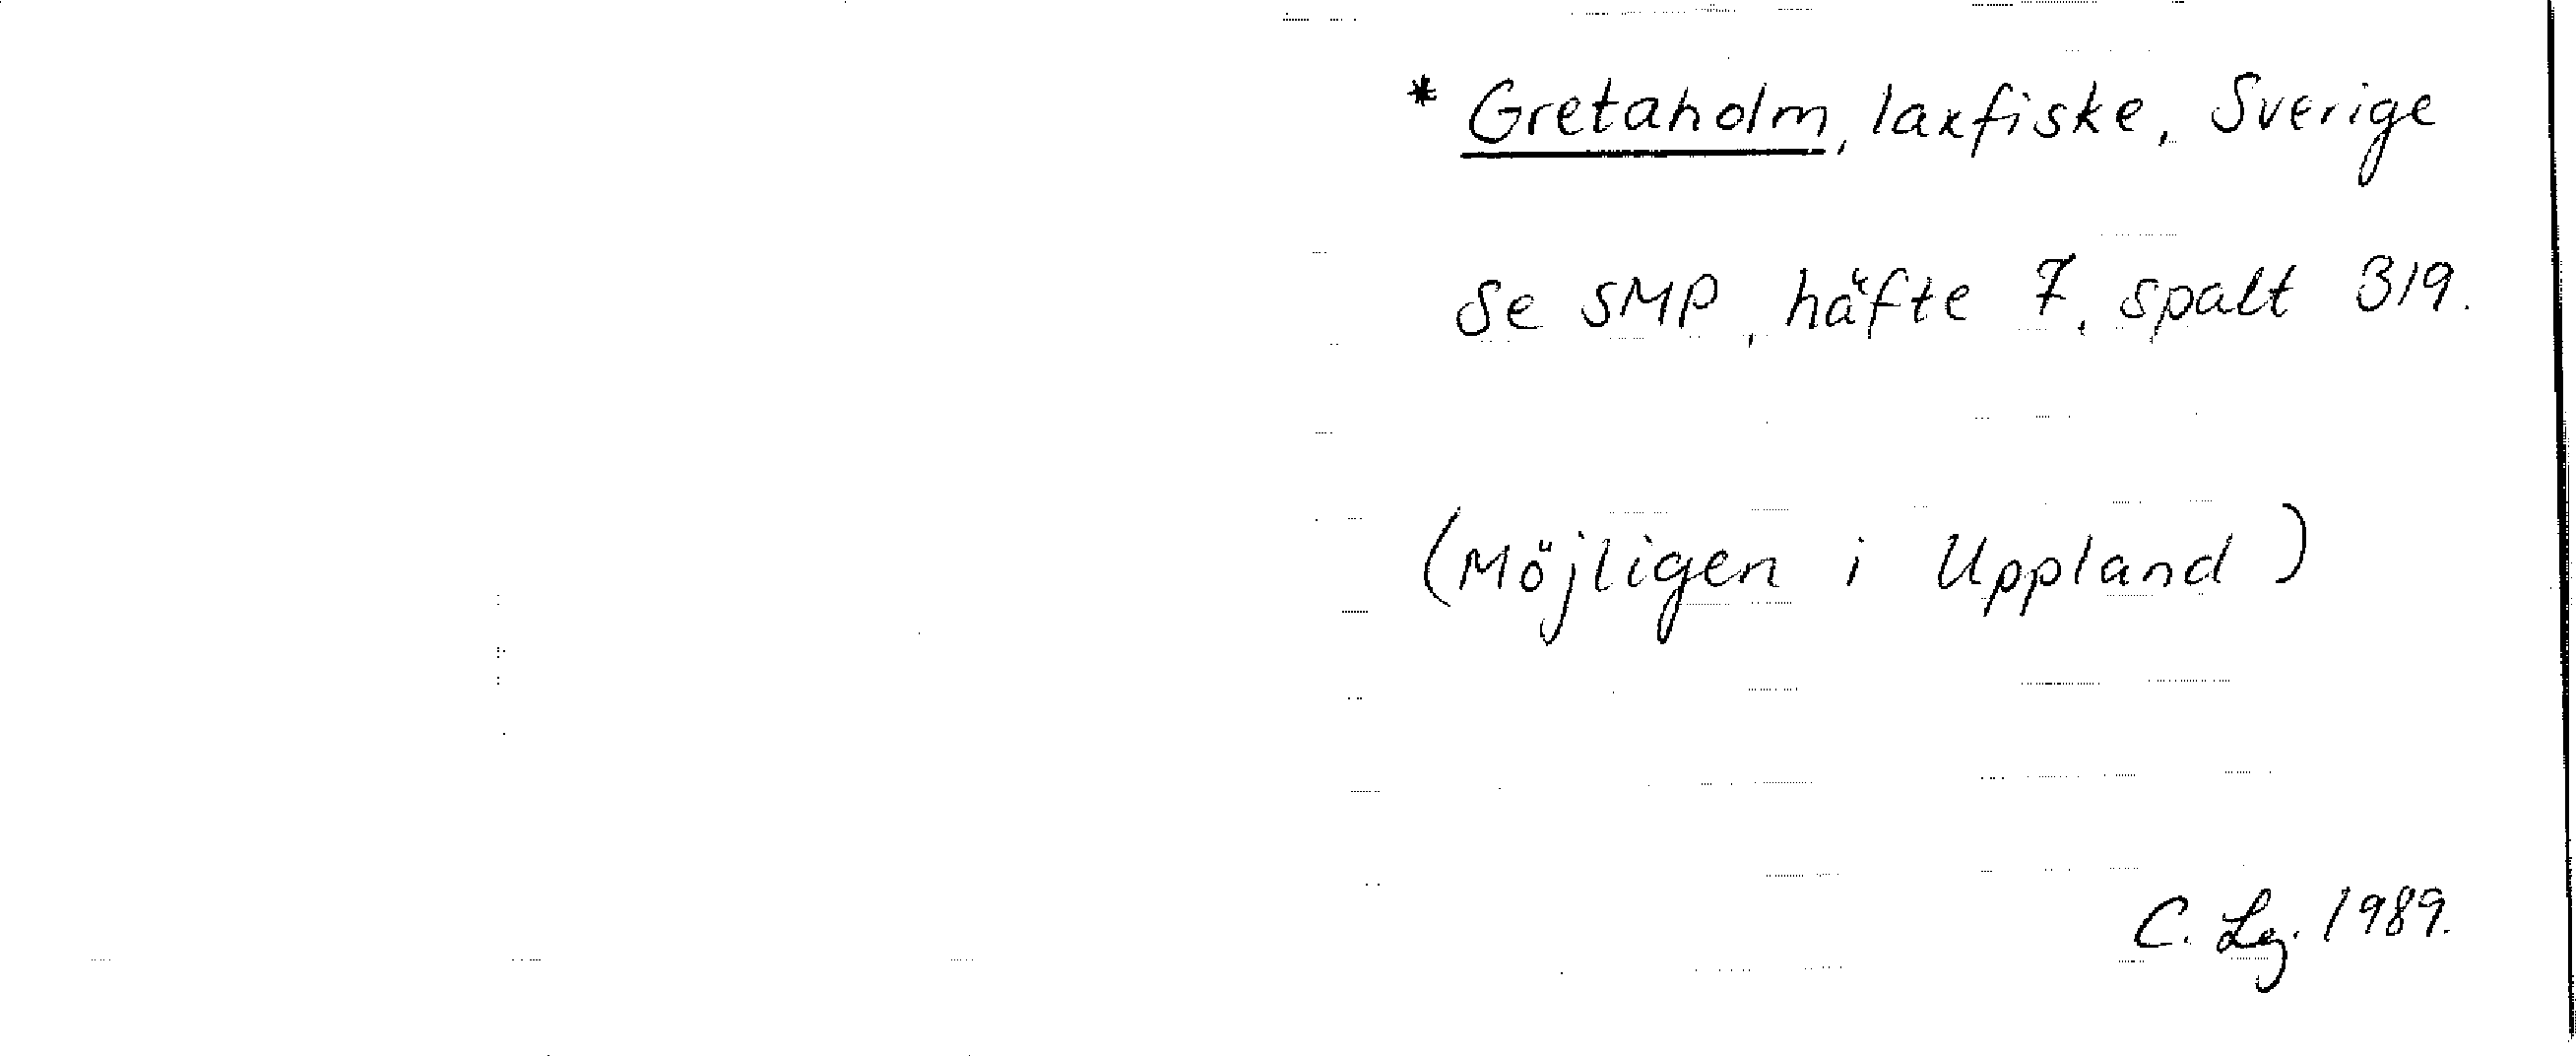 * Gretaholm, laxfiske, Sverige
Se SMP, häfte 7, spalt 319.
(Möjligen i Uppland)
C. Lg. 1989.